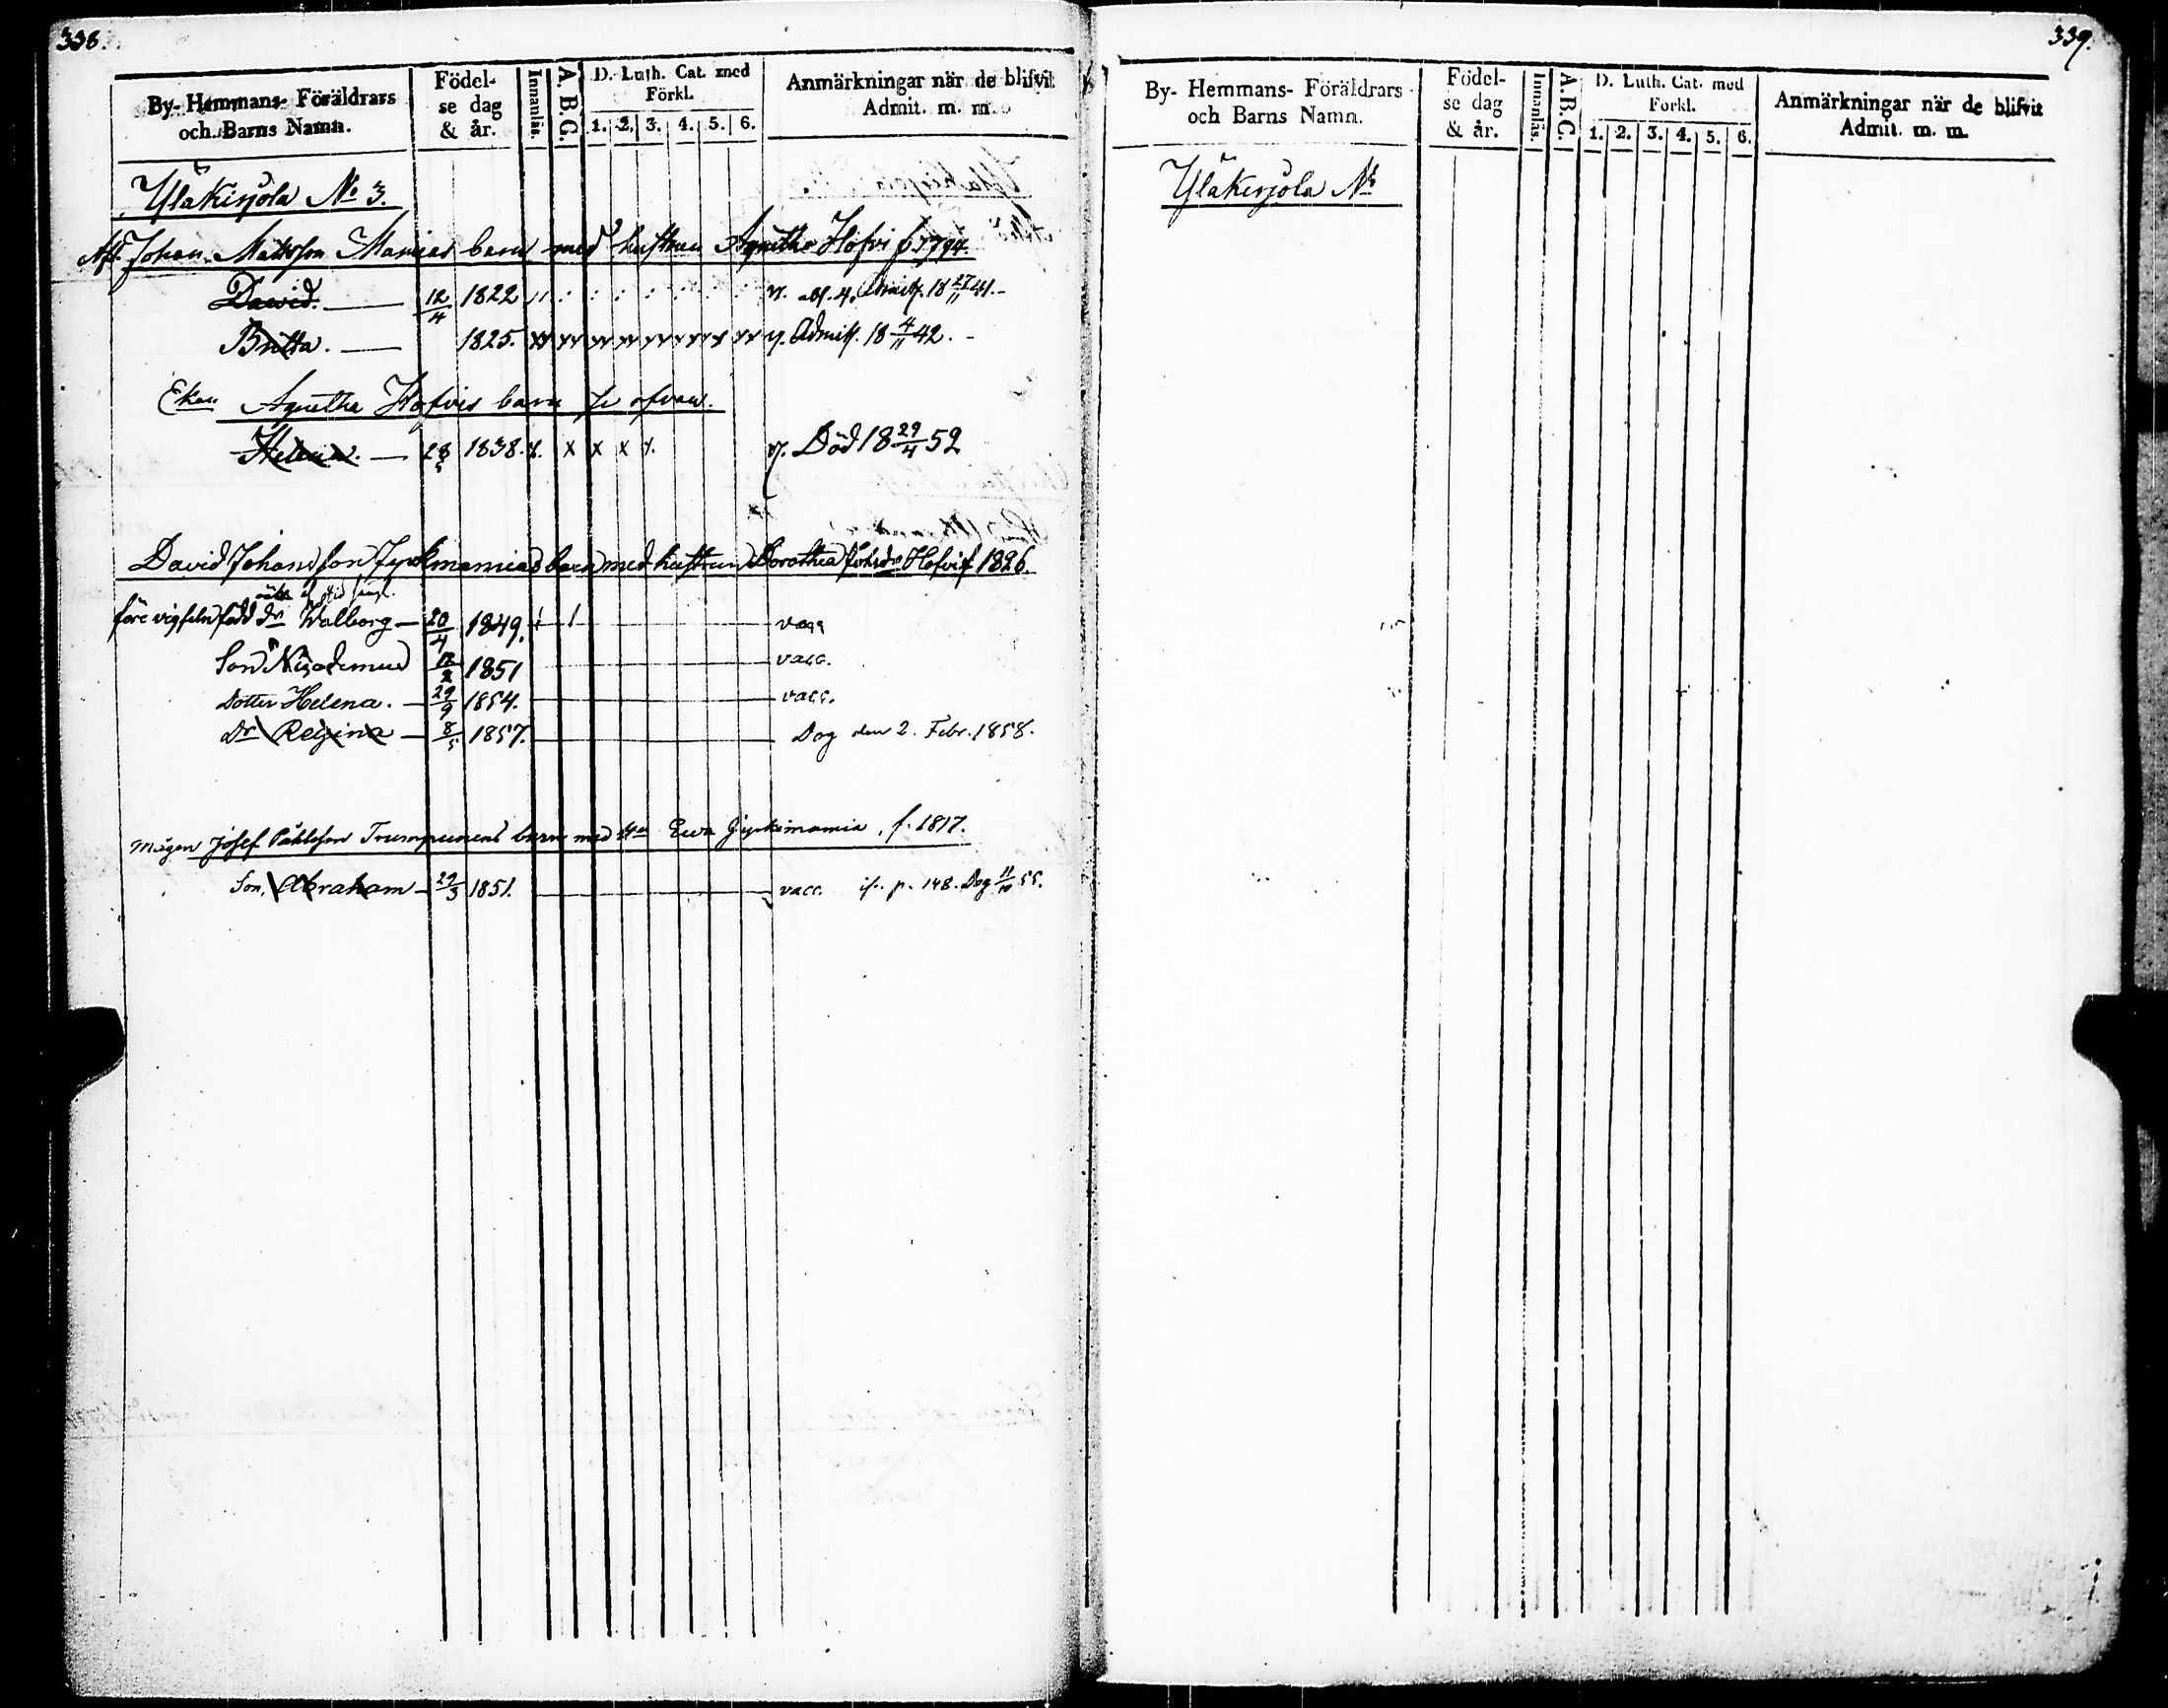 338.
By- Hemmans- Föräldrars
och Barns Namn.
Födel-
se dag
& år.
Innanläs.
A. B. C.
D. Luth. Cat. med
Förkl.
1. 2. 3. 4. 5. 6.
Anmärkningar när de blifvit
Admit. m. m.
Yläkirjola No 3.
Johan Mattsson Mamias barn med hustrun Agnetha Höfvi f 1794.
David. 12/4 1822 Admitt. 18 27/11 41.
Britta. 1825. Admitt. 18 4/11 42.
Enkan Agnetha Höfvis barn fr ofvan.
Helena. 28/5 1838. x x x x x. Död 18 29/4 52
David Johansson Jyrkimamias barn med hustrun Dorothea Höfvi f 1826.
före vigseln född dr Walborg 20/4 1849. vacc
Son Nicodemus 12/2 1851 vacc.
Dotter Helena. 29/9 1854. vacc.
Dr Regina 8/5 1857. Dog den 2. Febr. 1858.
Mågen Josef Påhlsson Trumpunens barn med Hu Ewa Jyrkimamia, f. 1817.
Son, Abraham 29/3 1851. vacc. p. 148. Dog 11/10 55.
339.
By- Hemmans- Föräldrars
och Barns Namn.
Födel-
se dag
& år.
Innanläs.
A. B. C.
D. Luth. Cat. med
Förkl.
1. 2. 3. 4. 5. 6.
Anmärkningar när de blifvit
Admit. m. m.
Yläkirjola No